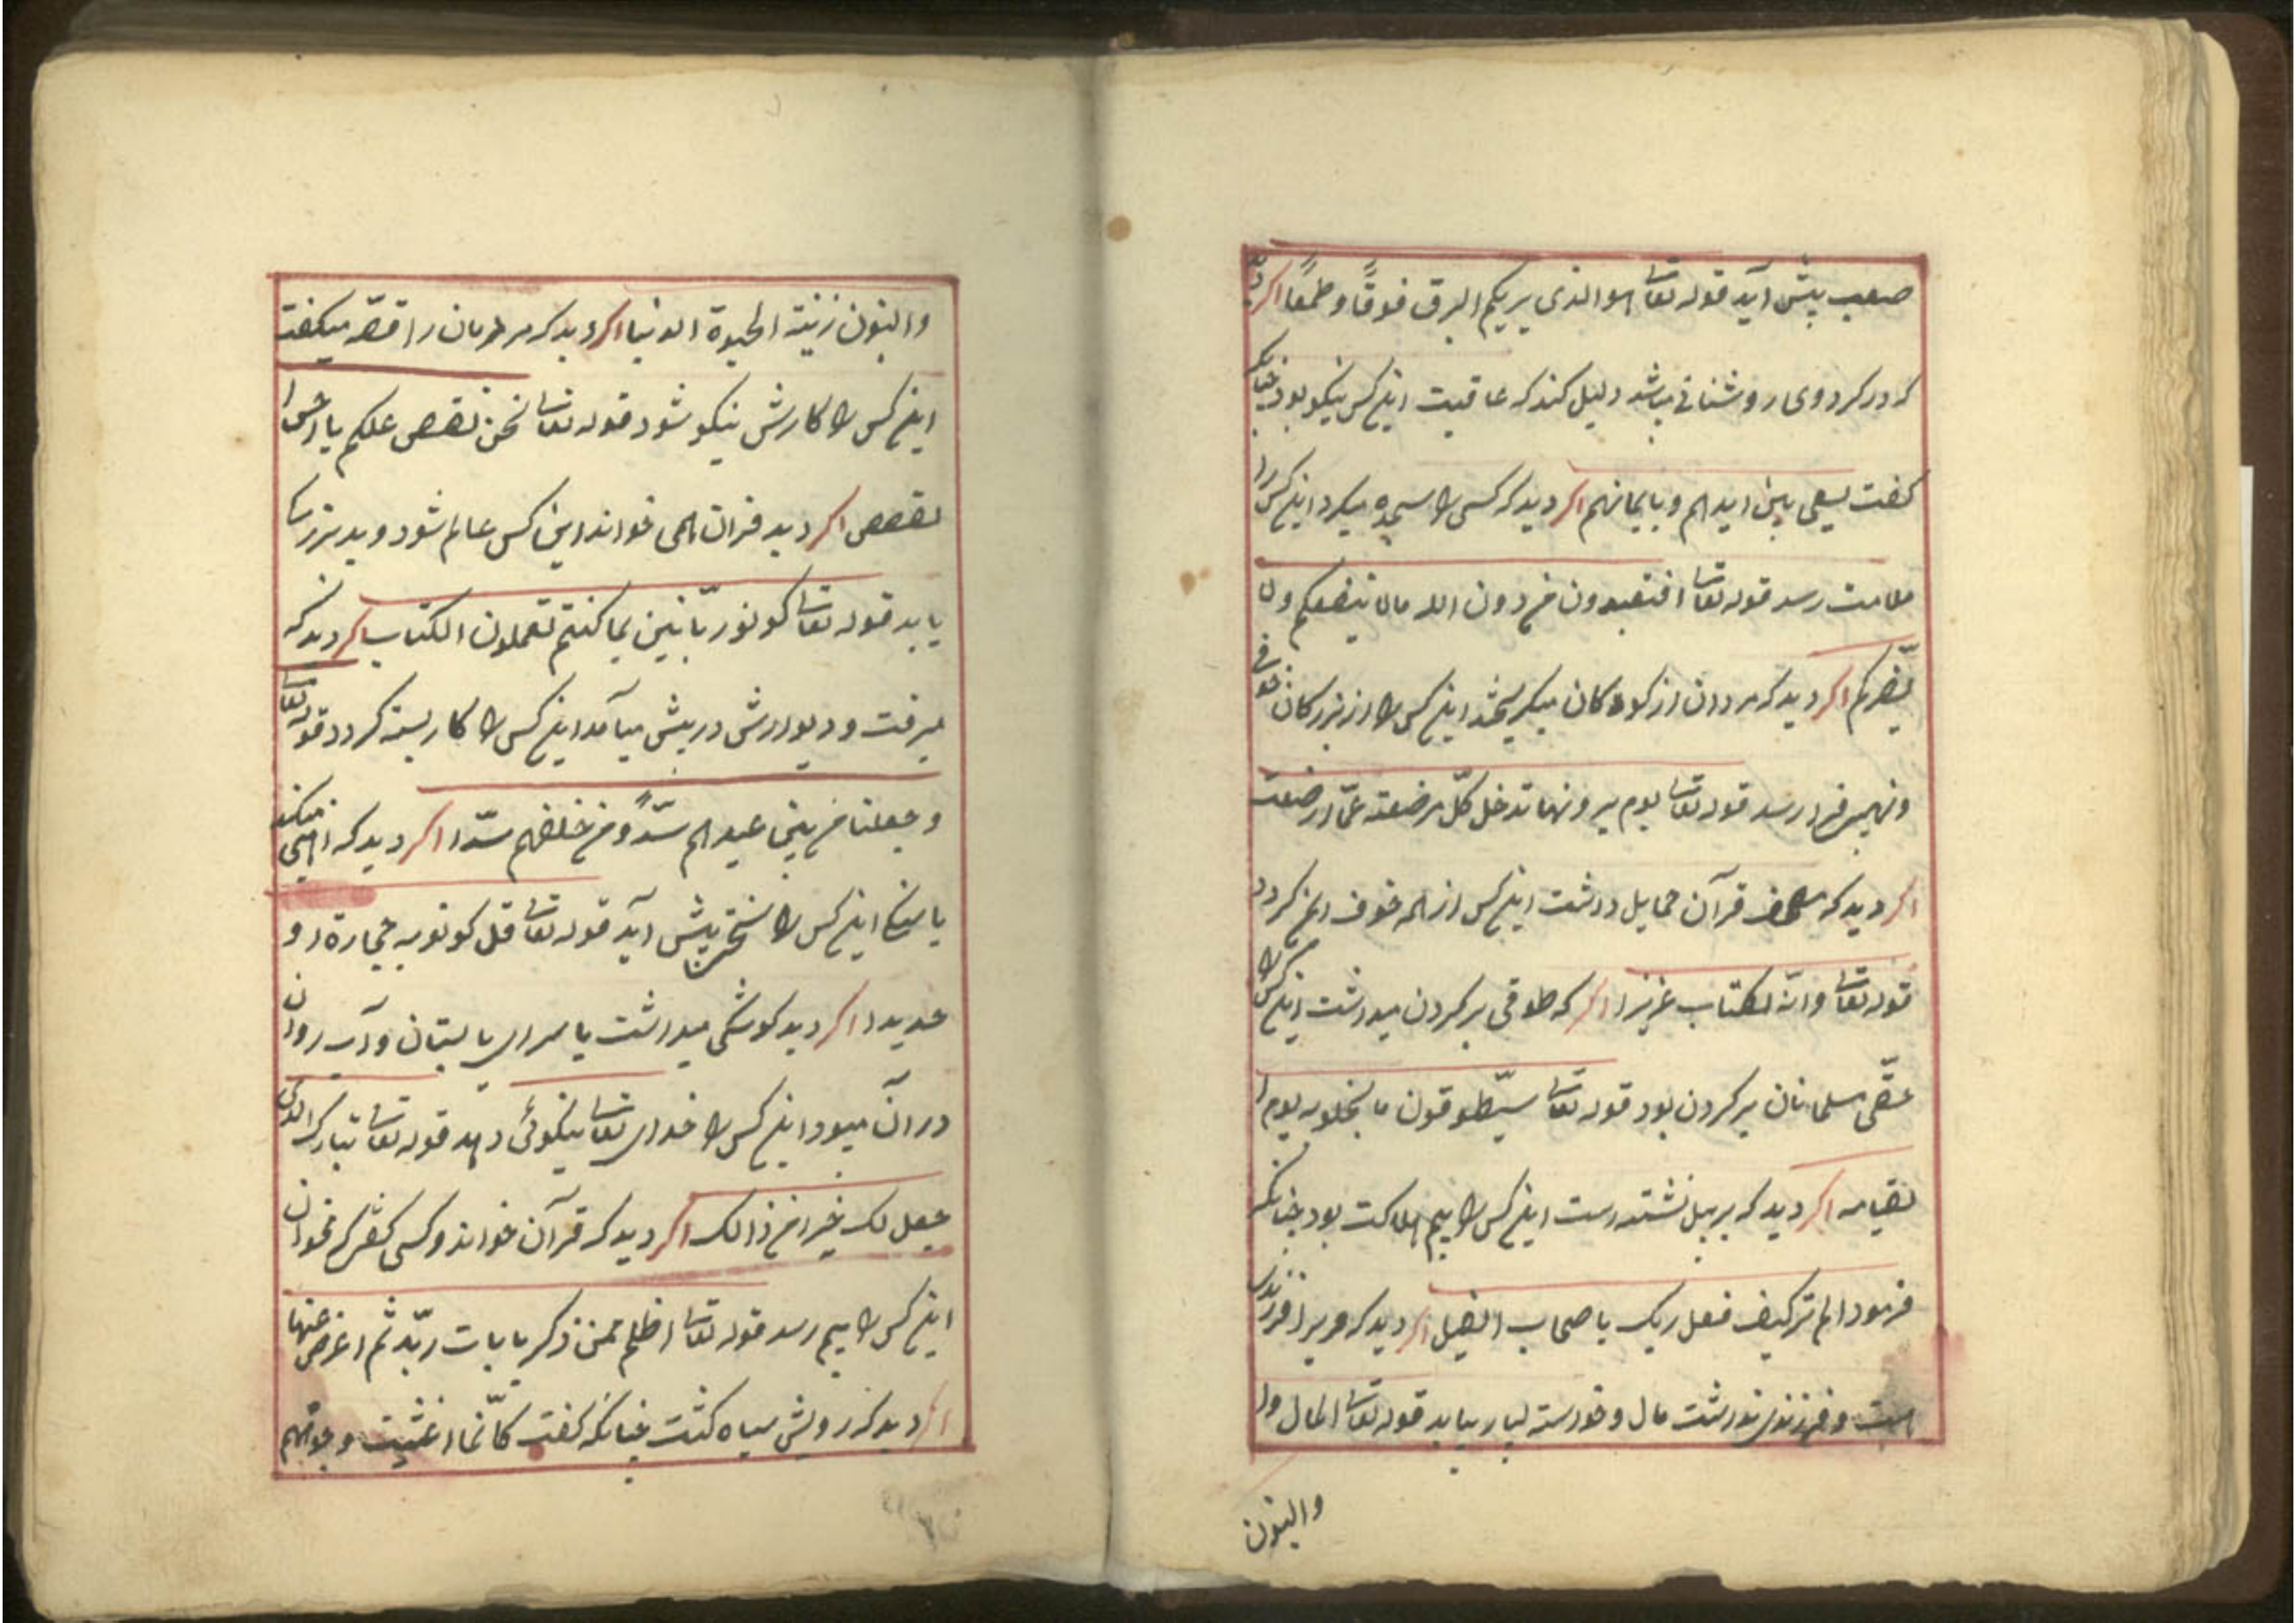 صعب پیش آید قوله تعا هو الذی یریکم البرق خوفًا و طمعًا اکر دید
که در کرد وی روشنائی میباشد دلیل کند که عاقبت اینکس نیکو بود چنانکه
کفت یسعی بین ایدیهم و بایمانهم اکر دید که کسی را سجده میکرد اینکس را
ملامت رسد قوله تعا افتعبدون من دون الله مالا ینفعکم ولا
یضرکم اکر دید که مردان از کودکان میکریختند اینکس را از بزرکان خوفی
و نهیبی فرا رسد قوله تعا یوم یرونها تدخل کلّ مرضعته عمّا ارضعت
اکر دید که مصحف قرآن حمایل داشت اینکس از همه خوف ایمن کردد
قوله تعا و انّه لکتاب عزیزا اکر که طوقی بر کردن میداشت اینکس را
حقّی مسلمانان بر کردن بود قوله تعا سیّطوقون ما بخلوبه یوم ا
لقیامه اکر دید که بر پیل نشته است اینکس را بیم هلاکت بود چنانکه
فرمود الم ترکیف فعل ربک باصحاب الفیل اکر دید که ویرا فرزندی
است و فرزندی نداشت مال و خواسته بسیار بیابد قوله تعا المال وا
والبنون
والبنون زینة الحیوة الدنیا اکر دید که مر مردمان را قصّه میکفت
اینکس را کارش نیکو شود قوله تعا نحن نقصص علیکم یا احسن ا
لقصص اکر دید قران همی خواند این کس عالم شود و بدبزرکی
یابد قوله تعا کونو ربّانیین بما کنتم تعملون الکتاب اکر دید که
میرفت و دیوارش در پیش میآمد اینکس را کار بسته کردد قوله تعا
و جعلنا من بین عیدیهم سدّاً و من خلفهم سدّا اکر دید که اهنی میکند
یا سنک اینکس را سختی پیش آید قوله تعا قل کونو به حجارة او
حدیدا اکر دید کوشکی میداشت یا سرای یا بستان و آب روان
در آن میبود اینکس را خدای تعا نیکوئی دهد قوله تعا تبارک الذی
جعل لک خیرا من ذالک اکر دید که قرآن خواند و کسی کفش که مخوان
اینکس را بیم رسد قوله تعا اظلم ممن ذکر بایات ربّه ثم اعرض عنها
اکر دید که رویش سیاه کشت چنانکه کفت کانّما اغشیت وجوههم